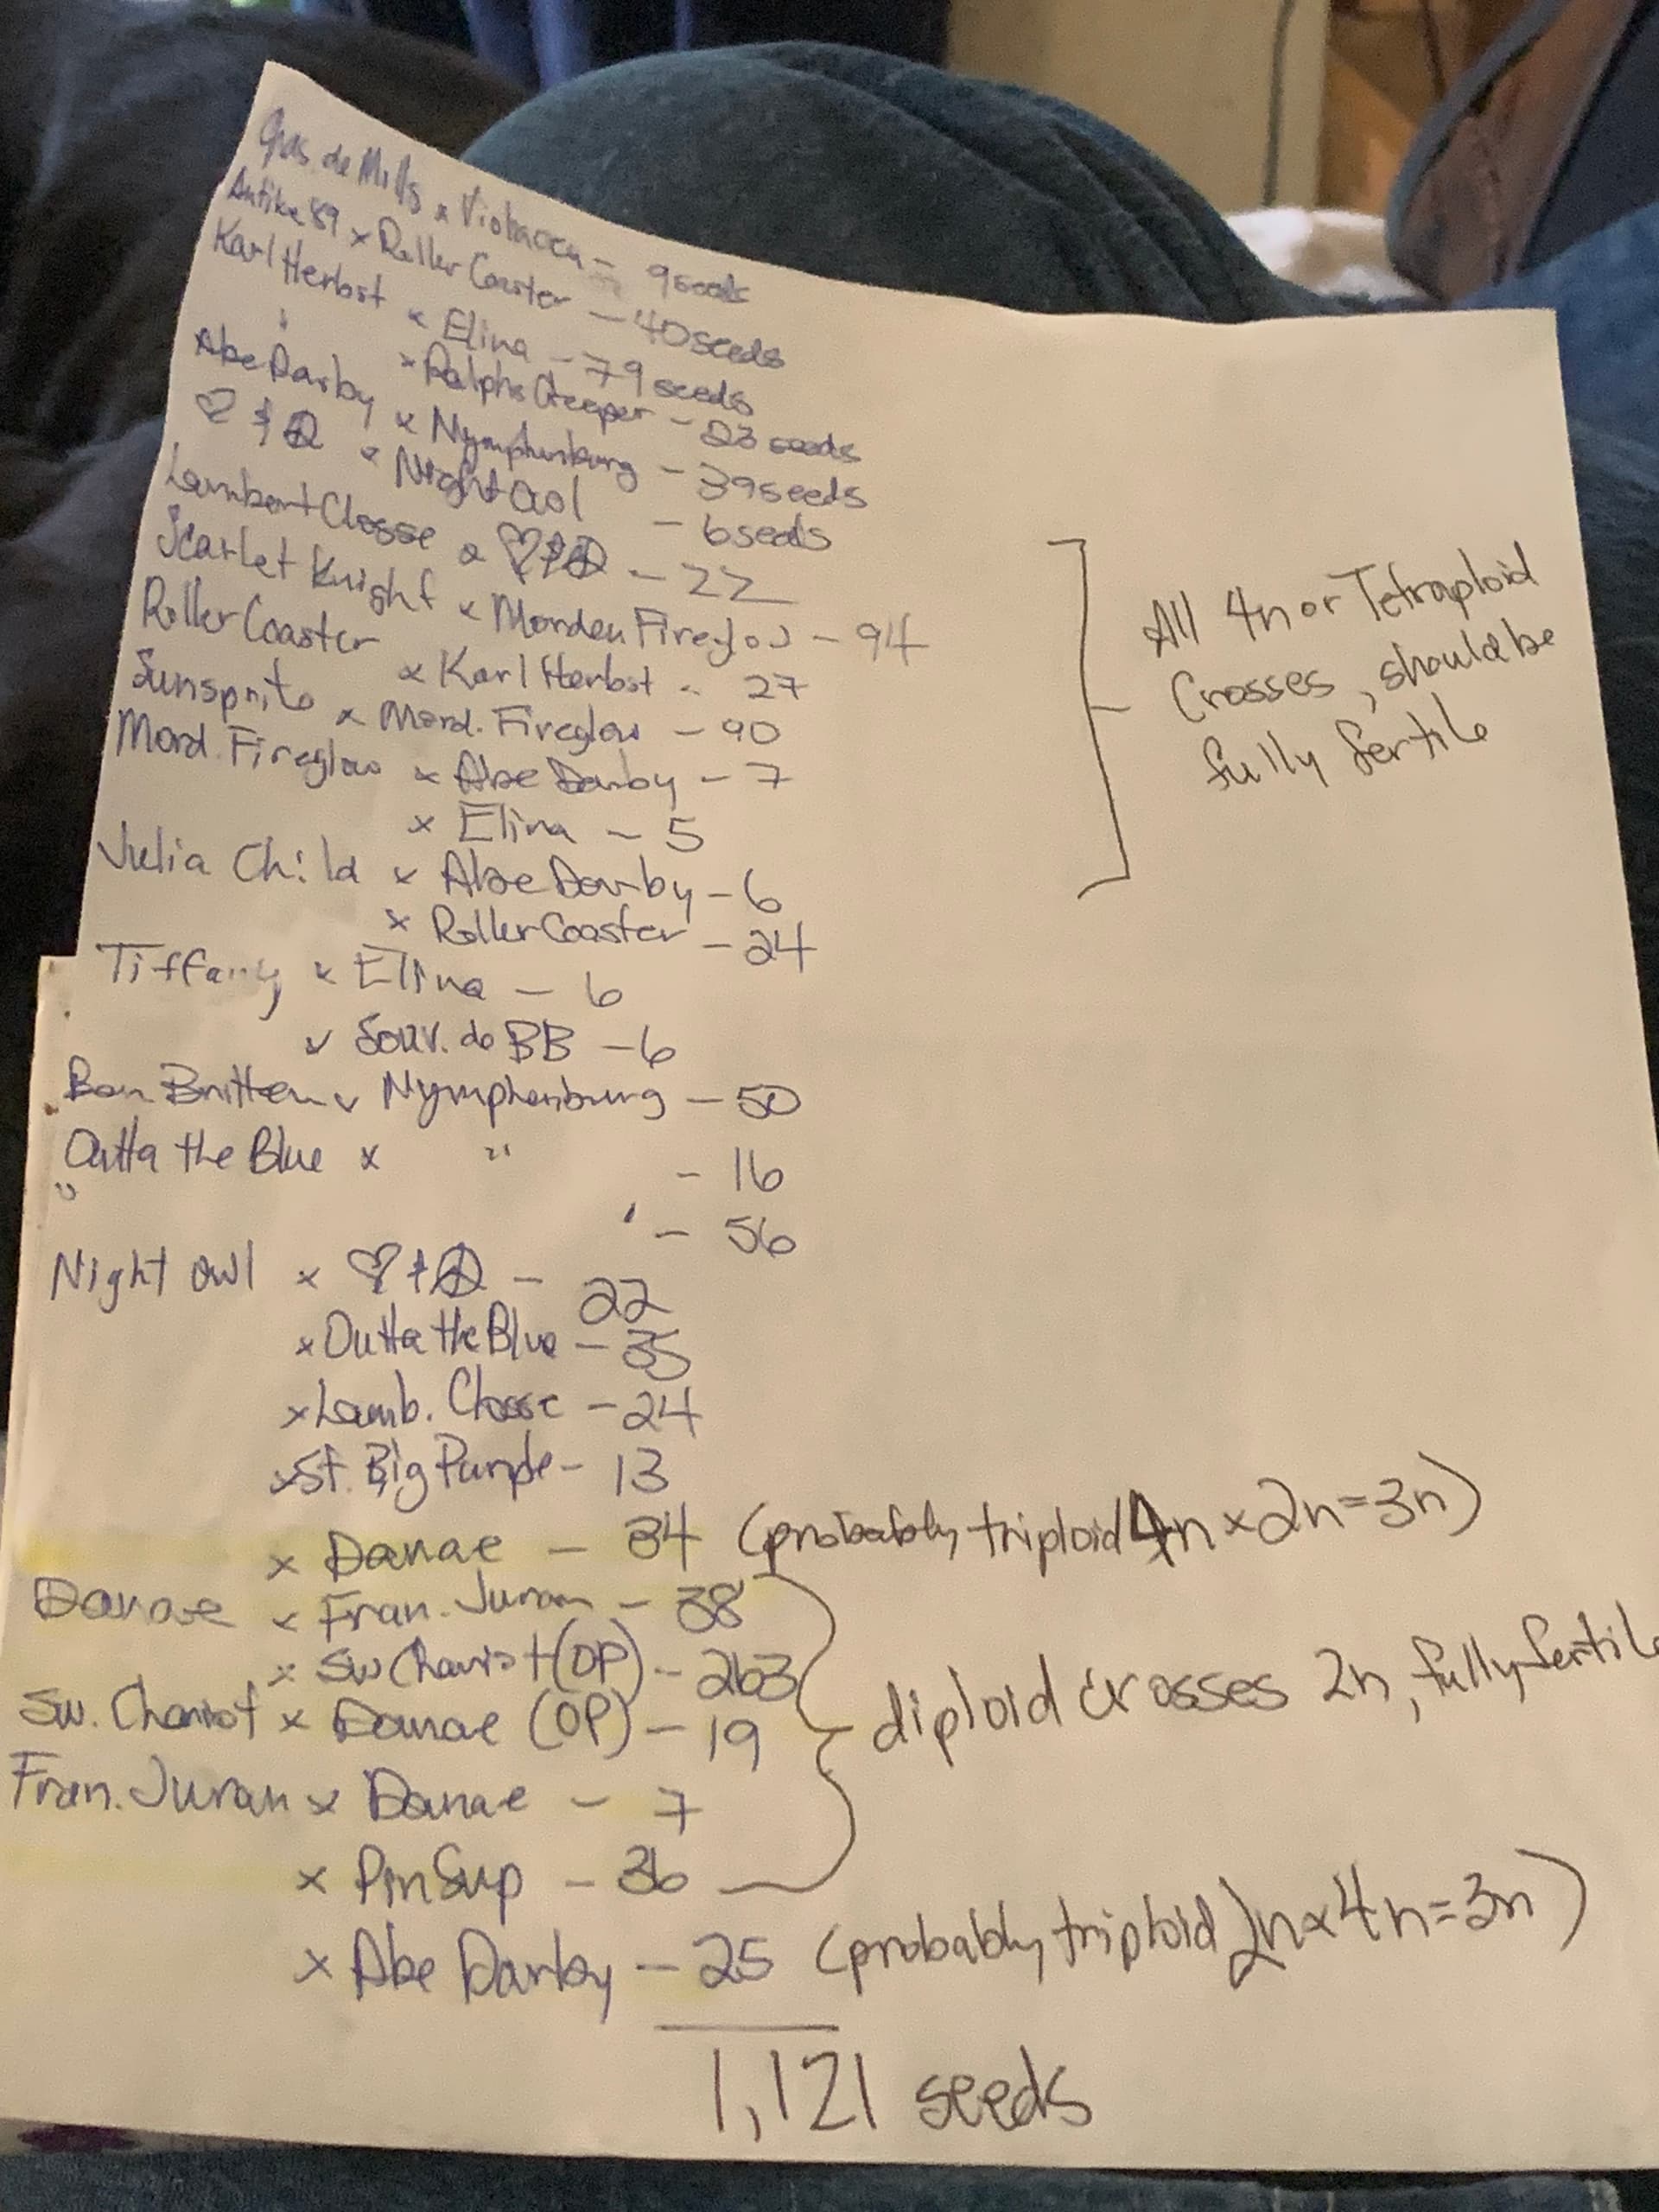 Chas. de Mills x Violacea - 9 seeds
Antike 89 x Roller Coaster - 40 seeds
Karl Herbst x Elina - 79 seeds
" x Ralph's Creeper - 23 seeds
Abe Darby x Nymphenburg - 39 seeds
♡ & ☮ x Night Owl - 6 seeds
Lambert Closse x ♡ & ☮ - 22
Scarlet Knight x Morden Fireglow - 94
Roller Coaster x Karl Herbst - 27
Sunsprite x Mord. Fireglow - 90
Mord. Fireglow x Abe Darby - 7
x Elina - 5
Julia Child x Abe Darby - 6
x Roller Coaster - 24
Tiffany x Elina - 6
x Souv. do BB - 6
Ben Britten x Nymphenburg - 50
Outta the Blue x " - 16
" ' - 56
Night Owl x ♡ & ☮ - 22
x Outta the Blue - 35
x Lamb. Closse - 24
x St. Big Purple - 13
x Danae - 34 (probably triploid 4n x 2n = 3n)
Danae x Fran. Juran - 38
x Sw Chariot (OP) - 263
Sw. Chariot x Danae (OP) - 19
Fran. Juran x Danae - 7
x PinSup - 36
x Abe Darby - 25 (probably triploid 2n x 4n = 3n)
1,121 seeds
All 4n or Tetraploid
Crosses, should be
fully fertile
diploid crosses 2n, fully fertile